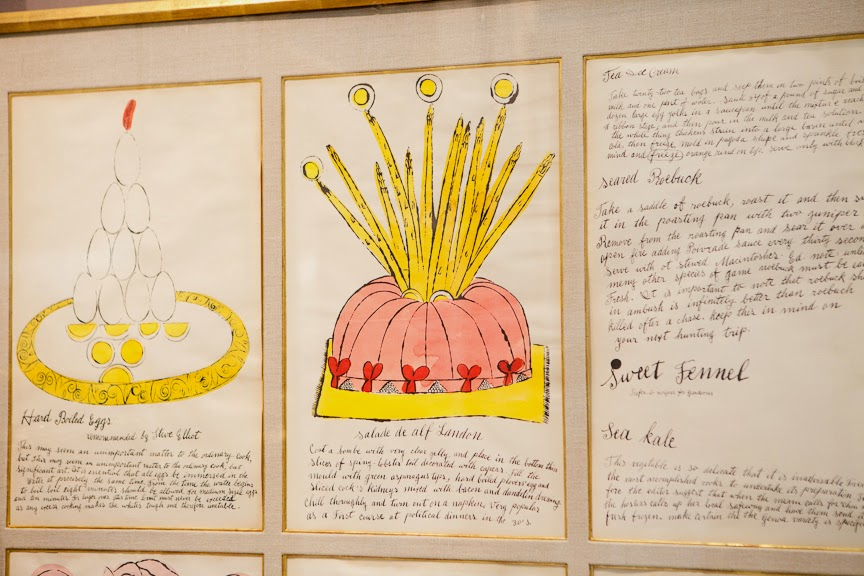 Hard Boiled Eggs
recommended by Steve Elliot
This may seem an unimportant matter to the ordinary cook,
but This may seem an unimportant matter to the ordinary cook, but
significant art. It is essential that all eggs be immersed in the
water at precisely the same time. From the time the water begins
to boil eight minutes should be allowed for medium sized eggs
and ten minutes for larger ones. This time limit must never be exceeded
as any excess cooking makes the whites tough and therefore inedible.
Salade de alf Landon
Coat a bombe with very clear jelly and place in the bottom thin
slices of spiny-lobster tail decorated with capers. Fill the
mould with green asparagus tips, hard boiled plovers eggs and
sliced cock's kidneys mixed with bacon and dandelion dressing
Chill thoroughly and turn out on a napkin. Very popular
as a First course at political dinners in the 30's
Tea Ice Cream
Take twenty-two tea bags and seep them in two pints of
milk and one pint of water. 3/4 of a pound of sugar and
dozen large egg yolks in a saucepan until the mixture
a ribbon stage, and then pour in the milk and tea solution.
the whole thing thickens strain into a large basin until
ice, then freeze mold in pagoda shape and sprinkle
mind and (freeze) orange rind on top. Serve only with
Seared Roebuck
Take a saddle of roebuck, roast it and then
it in the roasting pan with two juniper
Remove from the roasting pan and sear it over
open fire adding Poivrade sauce every thirty
Serve with ot stewed Macintoshes. Ed note
meny other species of game roebuck must be
Fresh. It is important to note that roebuck
in ambush is infinitly better than roebuck
killed after a chase. Keep this in mind on
your next hunting trip.
Sweet Fennel
Sea Kale
This vegetable is so delicate that it is inadvisable
the most accomplished cooks to undertake its preparation.
fore the editor suggest that when the menu calls for
the hostess call up her local safeway and have them send
fresh frozen. make certain tht the genoa variety is